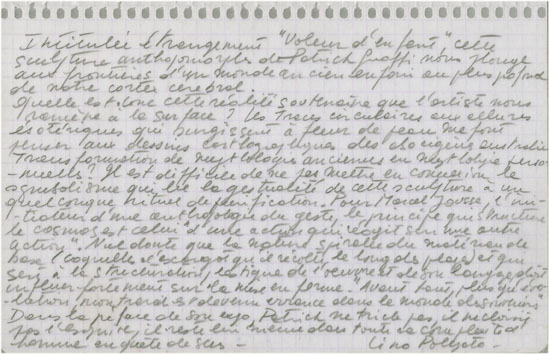 Intitulée étrangement "Voleur d'enfant" cette
sculpture anthropomorphe de Patrick nous plonge
aux frontières d'un monde ancien enfoui au plus profond
de notre cortex cérébral.
Quelle est donc cette réalité souterraine que l'artiste nous
ramène à la surface ? Les traces circulaires aux allures
ésotériques qui surgissent à fleur de peau me font
penser aux dessins des
Transformation de mythologies anciennes en mythologie perso-
nuelle ? Il est difficile de ne pas mettre en connexion le
symbolisme qui lie la gestualité de cette sculpture à un
quelconque rituel de purification. Pour Marcel Jousse, l'ini-
tiateur d'une anthropologie du geste, le principe qui structure
le cosmos est celui "d'une action qui réagit sur une autre
action". Nul doute que la nature spirale du matériau de
base (coquilles d'escargot qu'il récolte le long des plages) et qui
sert à la structuration de l'oeuvre et de son langage doit
influer fortement sur la mise en forme.
dans le monde
Dans la préface de son expo, Patrick ne triche pas, il
pas il reste lui même dans toute sa complexité
d'homme en quête de